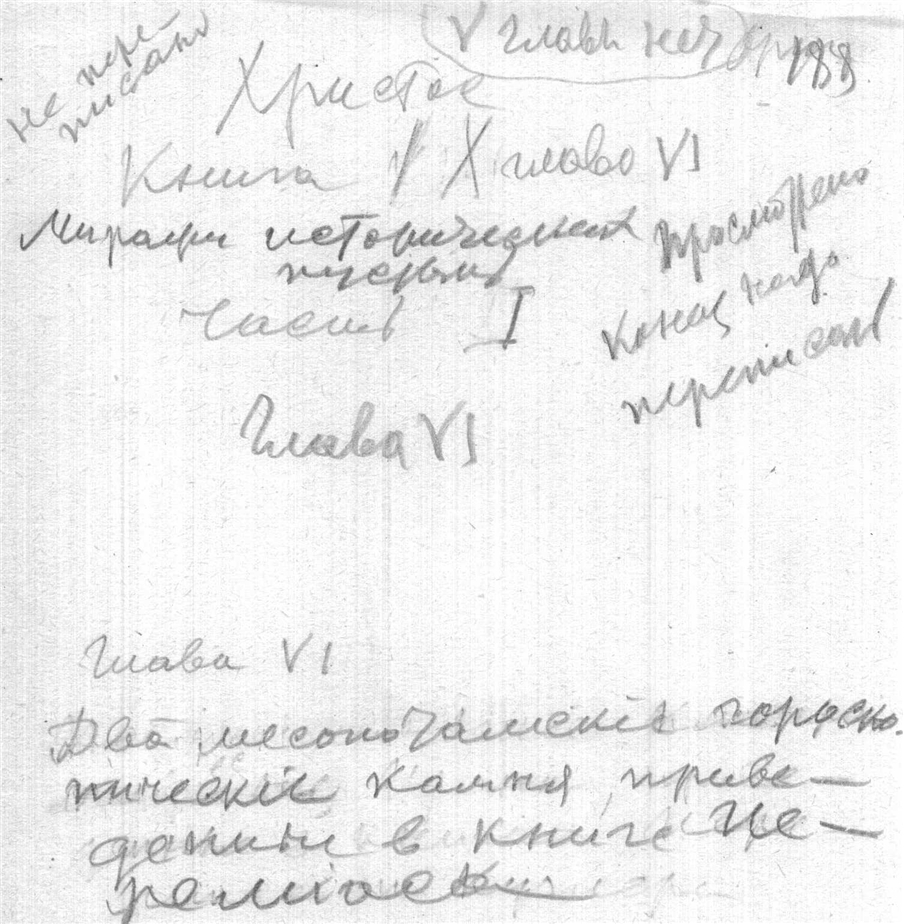 не пере-
писано
V главы нет
188
Христос
Книга X глава VI
Миражи исторических
пустынь
Часть I
Просмотрено
Конец надо
переписать
Глава VI
Глава VI
Два месопотамскіе гороско-
пическіе камня, приве-
денные в книге Іе-
реміаса